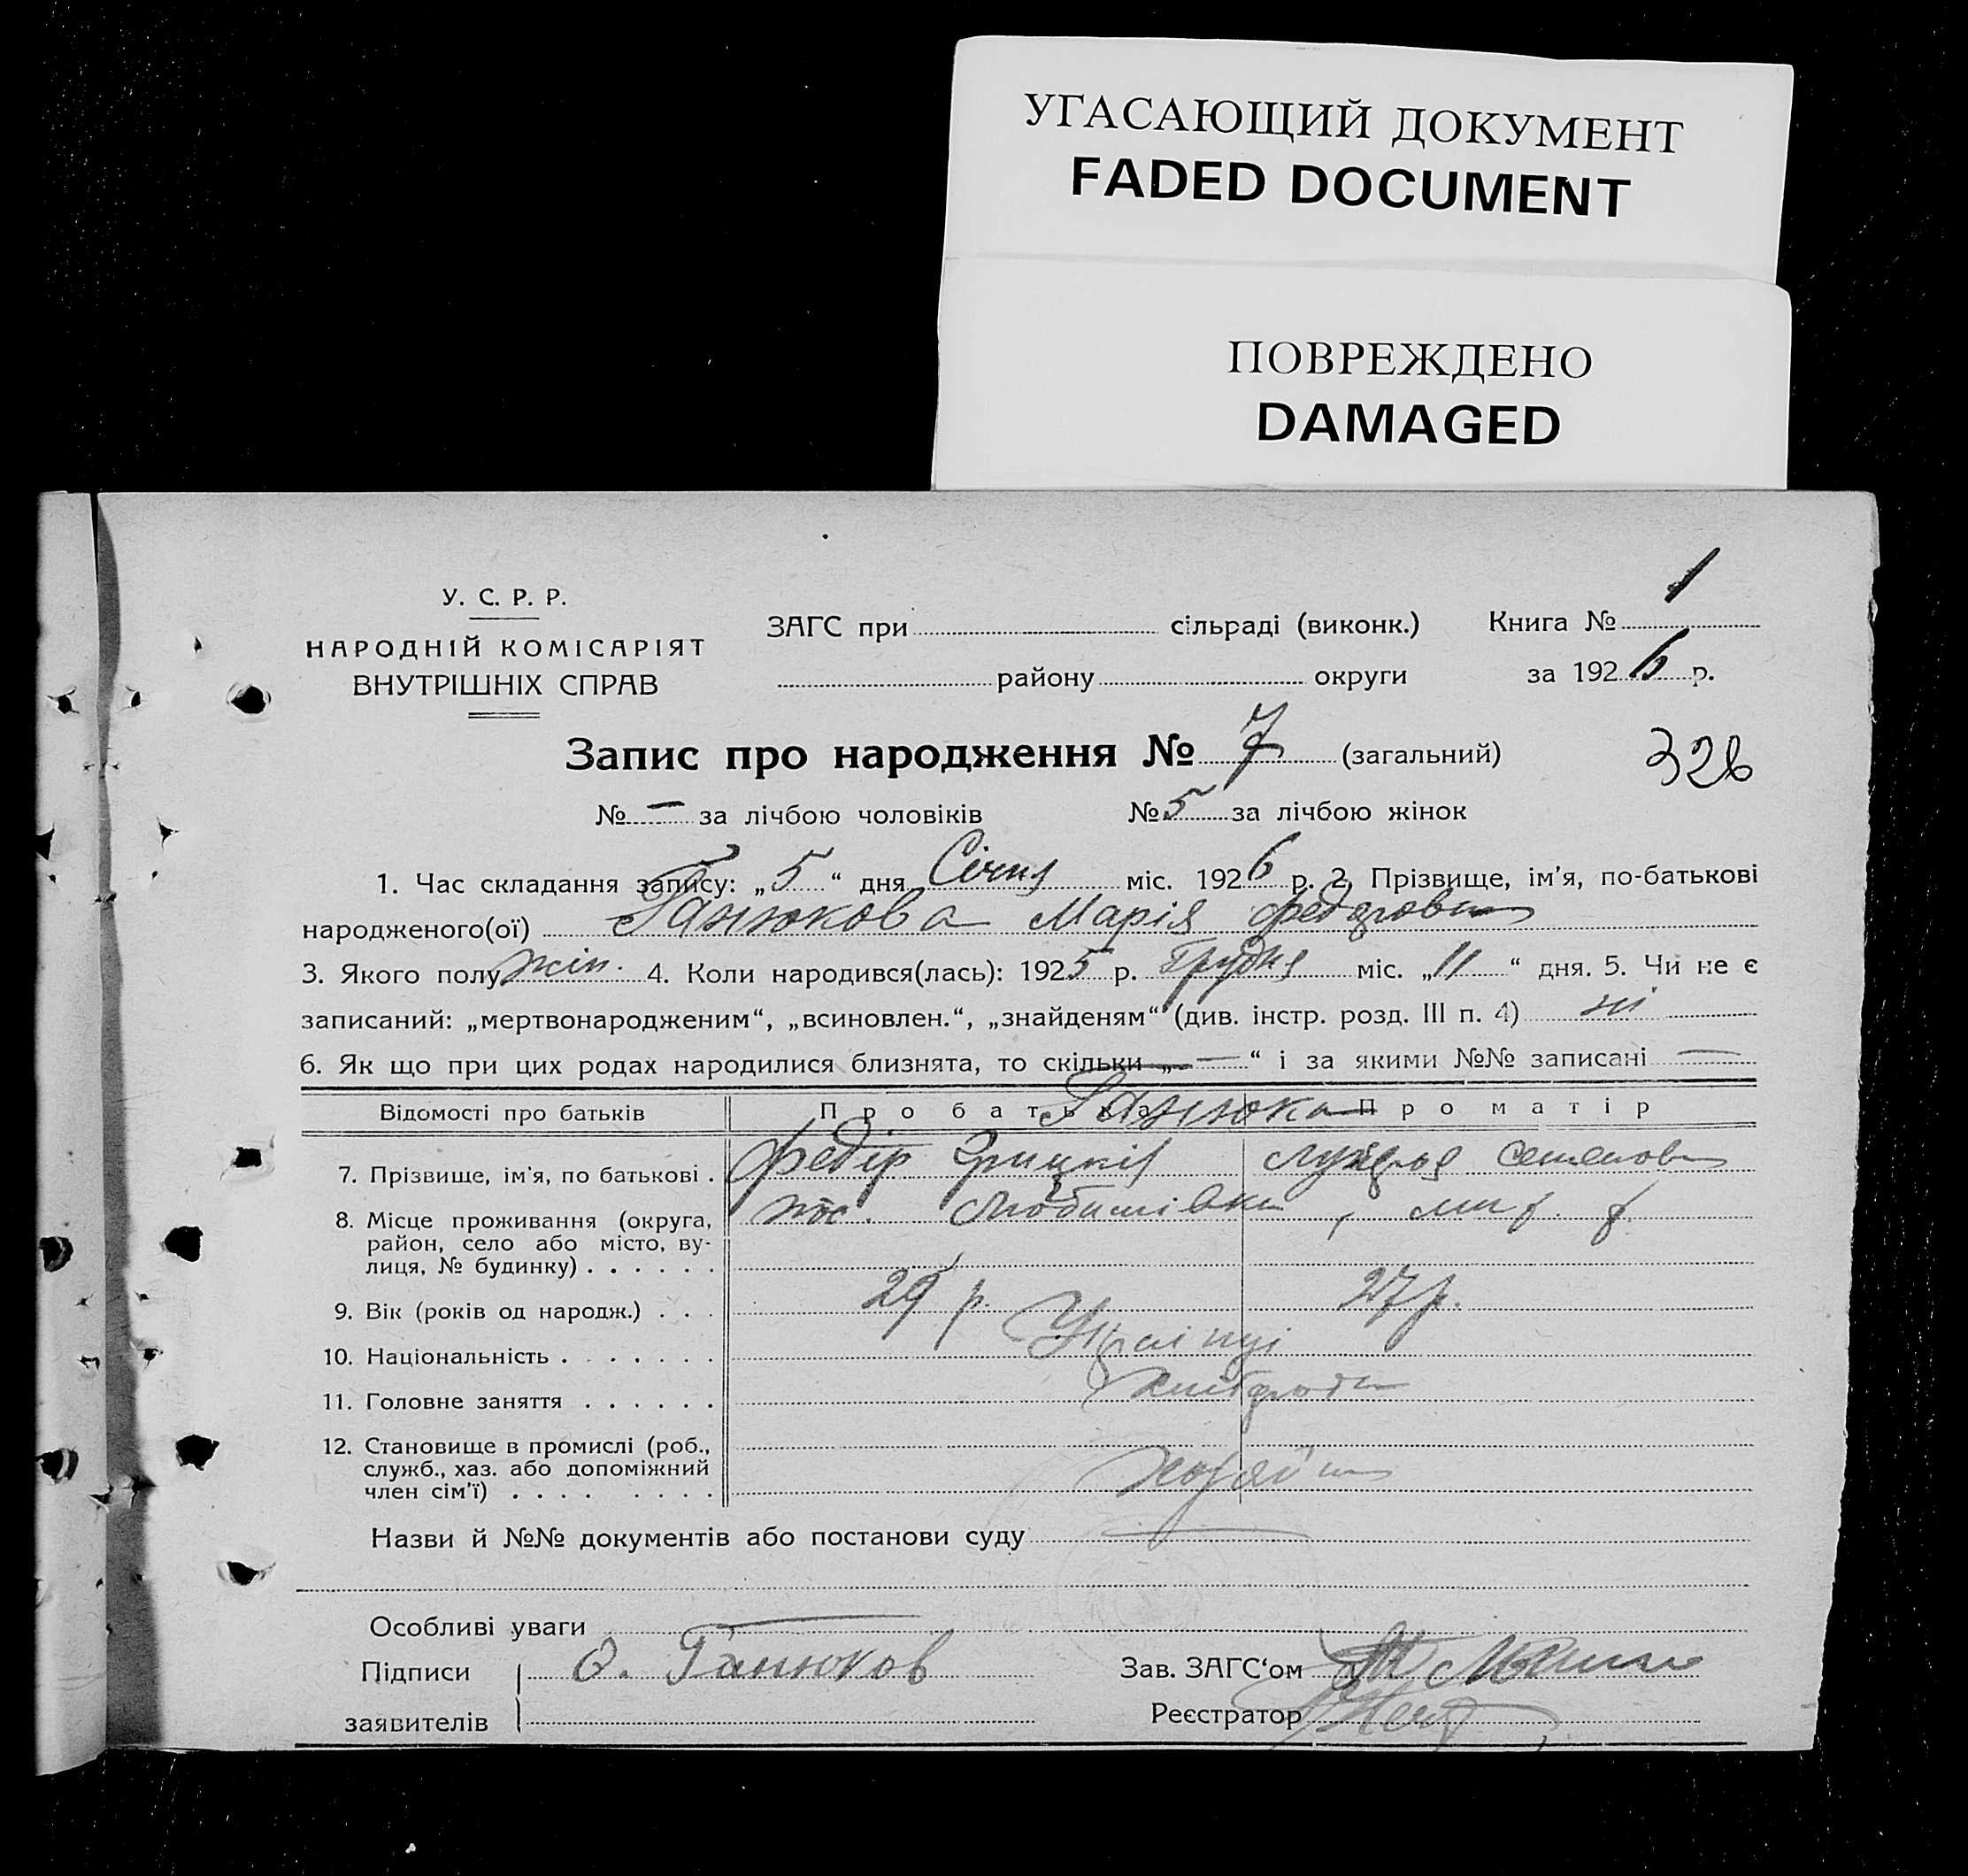 УГАСАЮЩИЙ ДОКУМЕНТ
FADED DOCUMENT
ПОВРЕЖДЕНО
DAMAGED
У. С. Р. Р.
НАРОДНІЙ КОМІСАРІЯТ
ВНУТРІШНІХ СПРАВ
ЗАГС при сільраді (виконк.)
району округи
Книга № 1
за 1926 р.
Запис про народження № 7 (загальний)
326
№ — за лічбою чоловіків № 5 за лічбою жінок
1. Час складання запису: „5“ дня Січня міс. 1926 р. 2. Прізвище, ім'я, по-батькові
народженого(ої) Ганюкова Марія Федоровна
3. Якого полу жін. 4. Коли народився(лась): 1925 р. Грудня міс. „11“ дня. 5. Чи не є
записаний: „мертвонародженим“, „всиновлен.“, „знайденям“ (див. інстр. розд. III п. 4) ні
6. Як що при цих родах народилися близнята, то скільки „—“ і за якими №№ записані —
Відомості про батьків Про батька Про матір
7. Прізвище, ім'я, по батькові . Федір Грицків
8. Місце проживання (округа, Любимівка
район, село або місто, ву-
лиця, № будинку) . . . . . .
9. Вік (років од народж.) . . . 29 р. 27 р.
10. Національність . . . . . . . Українці
11. Головне заняття . . . . . .
12. Становище в промислі (роб.,
служб., хаз. або допоміжний
член сім'ї) . . . . . . . .
Назви й №№ документів або постанови суду
Особливі уваги
Підписи Ганюков
заявителів
Зав. ЗАГС‘ом
Реєстратор